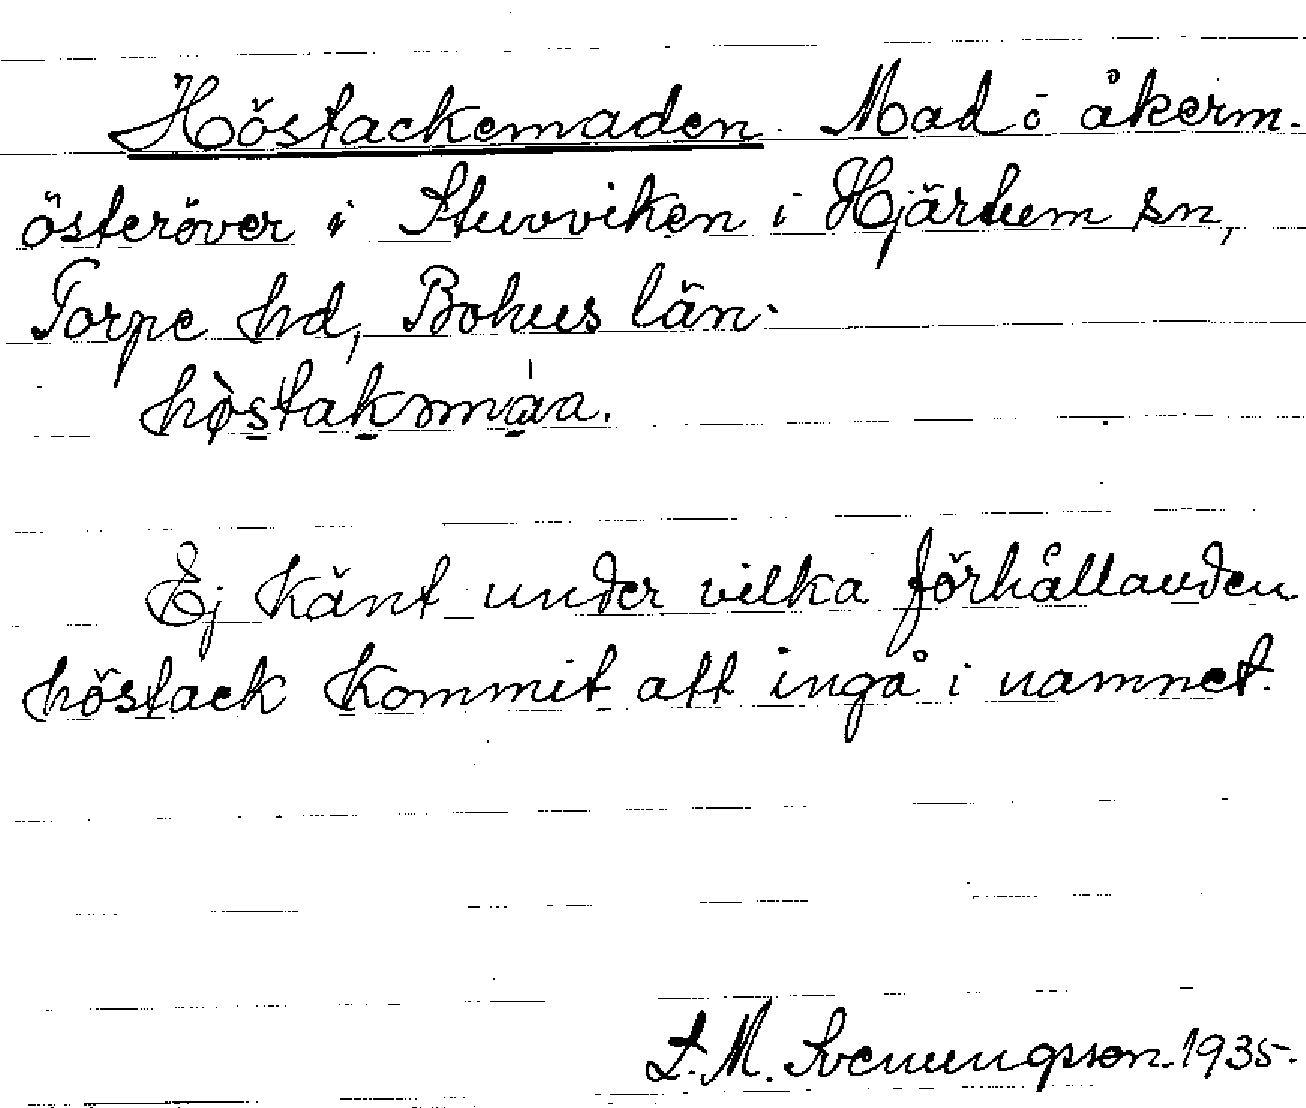 Höstackemaden. Mad o åkerm.
österöver i Stuvviken i Hjärtum sn,
Torpe hd, Bohus län.
hø̀stakmåa.
Ej känt under vilka förhållanden
höstack kommit att ingå i namnet.
L. M. Svenungsson. 1935.